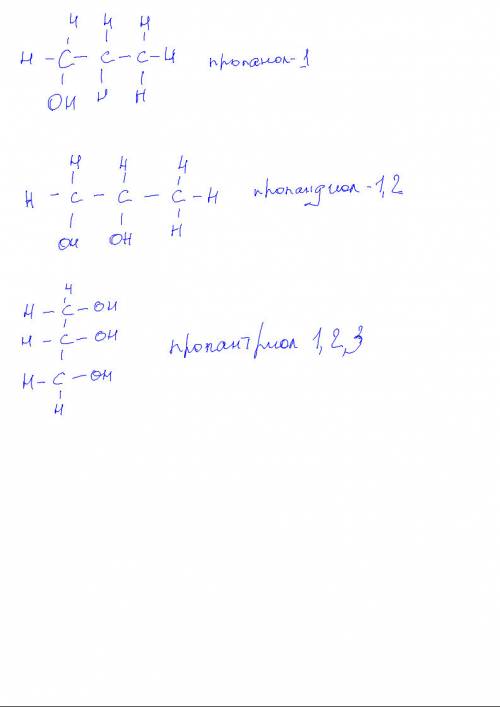 H H H
H – C – C – C – H пропанол-1
OH H H
H H H
H – C – C – C – H пропандиол-1,2
OH OH H
H
H – C – OH
H – C – OH пропантриол 1,2,3
H – C – OH
H